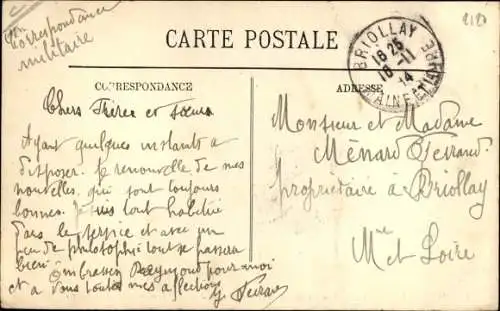 Correspondance
militaire
2120
CARTE POSTALE
BRIOLLAY
18 25
18-11
14
MAINE-ET-LOIRE
CORRESPONDANCE
ADRESSE
Chers Frères et sœurs
Ayant quelques instants a
disposer. Je renouvelle de mes
nouvelles. qui sont toujours
bonnes. Je suis tout habitué
dans le service et avec un
peu de philosophie tout se passera
bien. Embrassez Raymond pour moi
et a vous toutes mes affections
Monsieur et Madame
Ménard
propriétaire à Briollay
Me et Loire